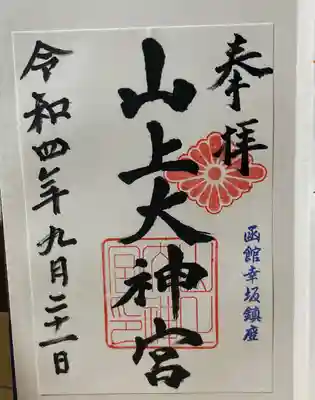 奉拝
函館幸坂鎮座
山上大神宮
令和四年九月二十一日